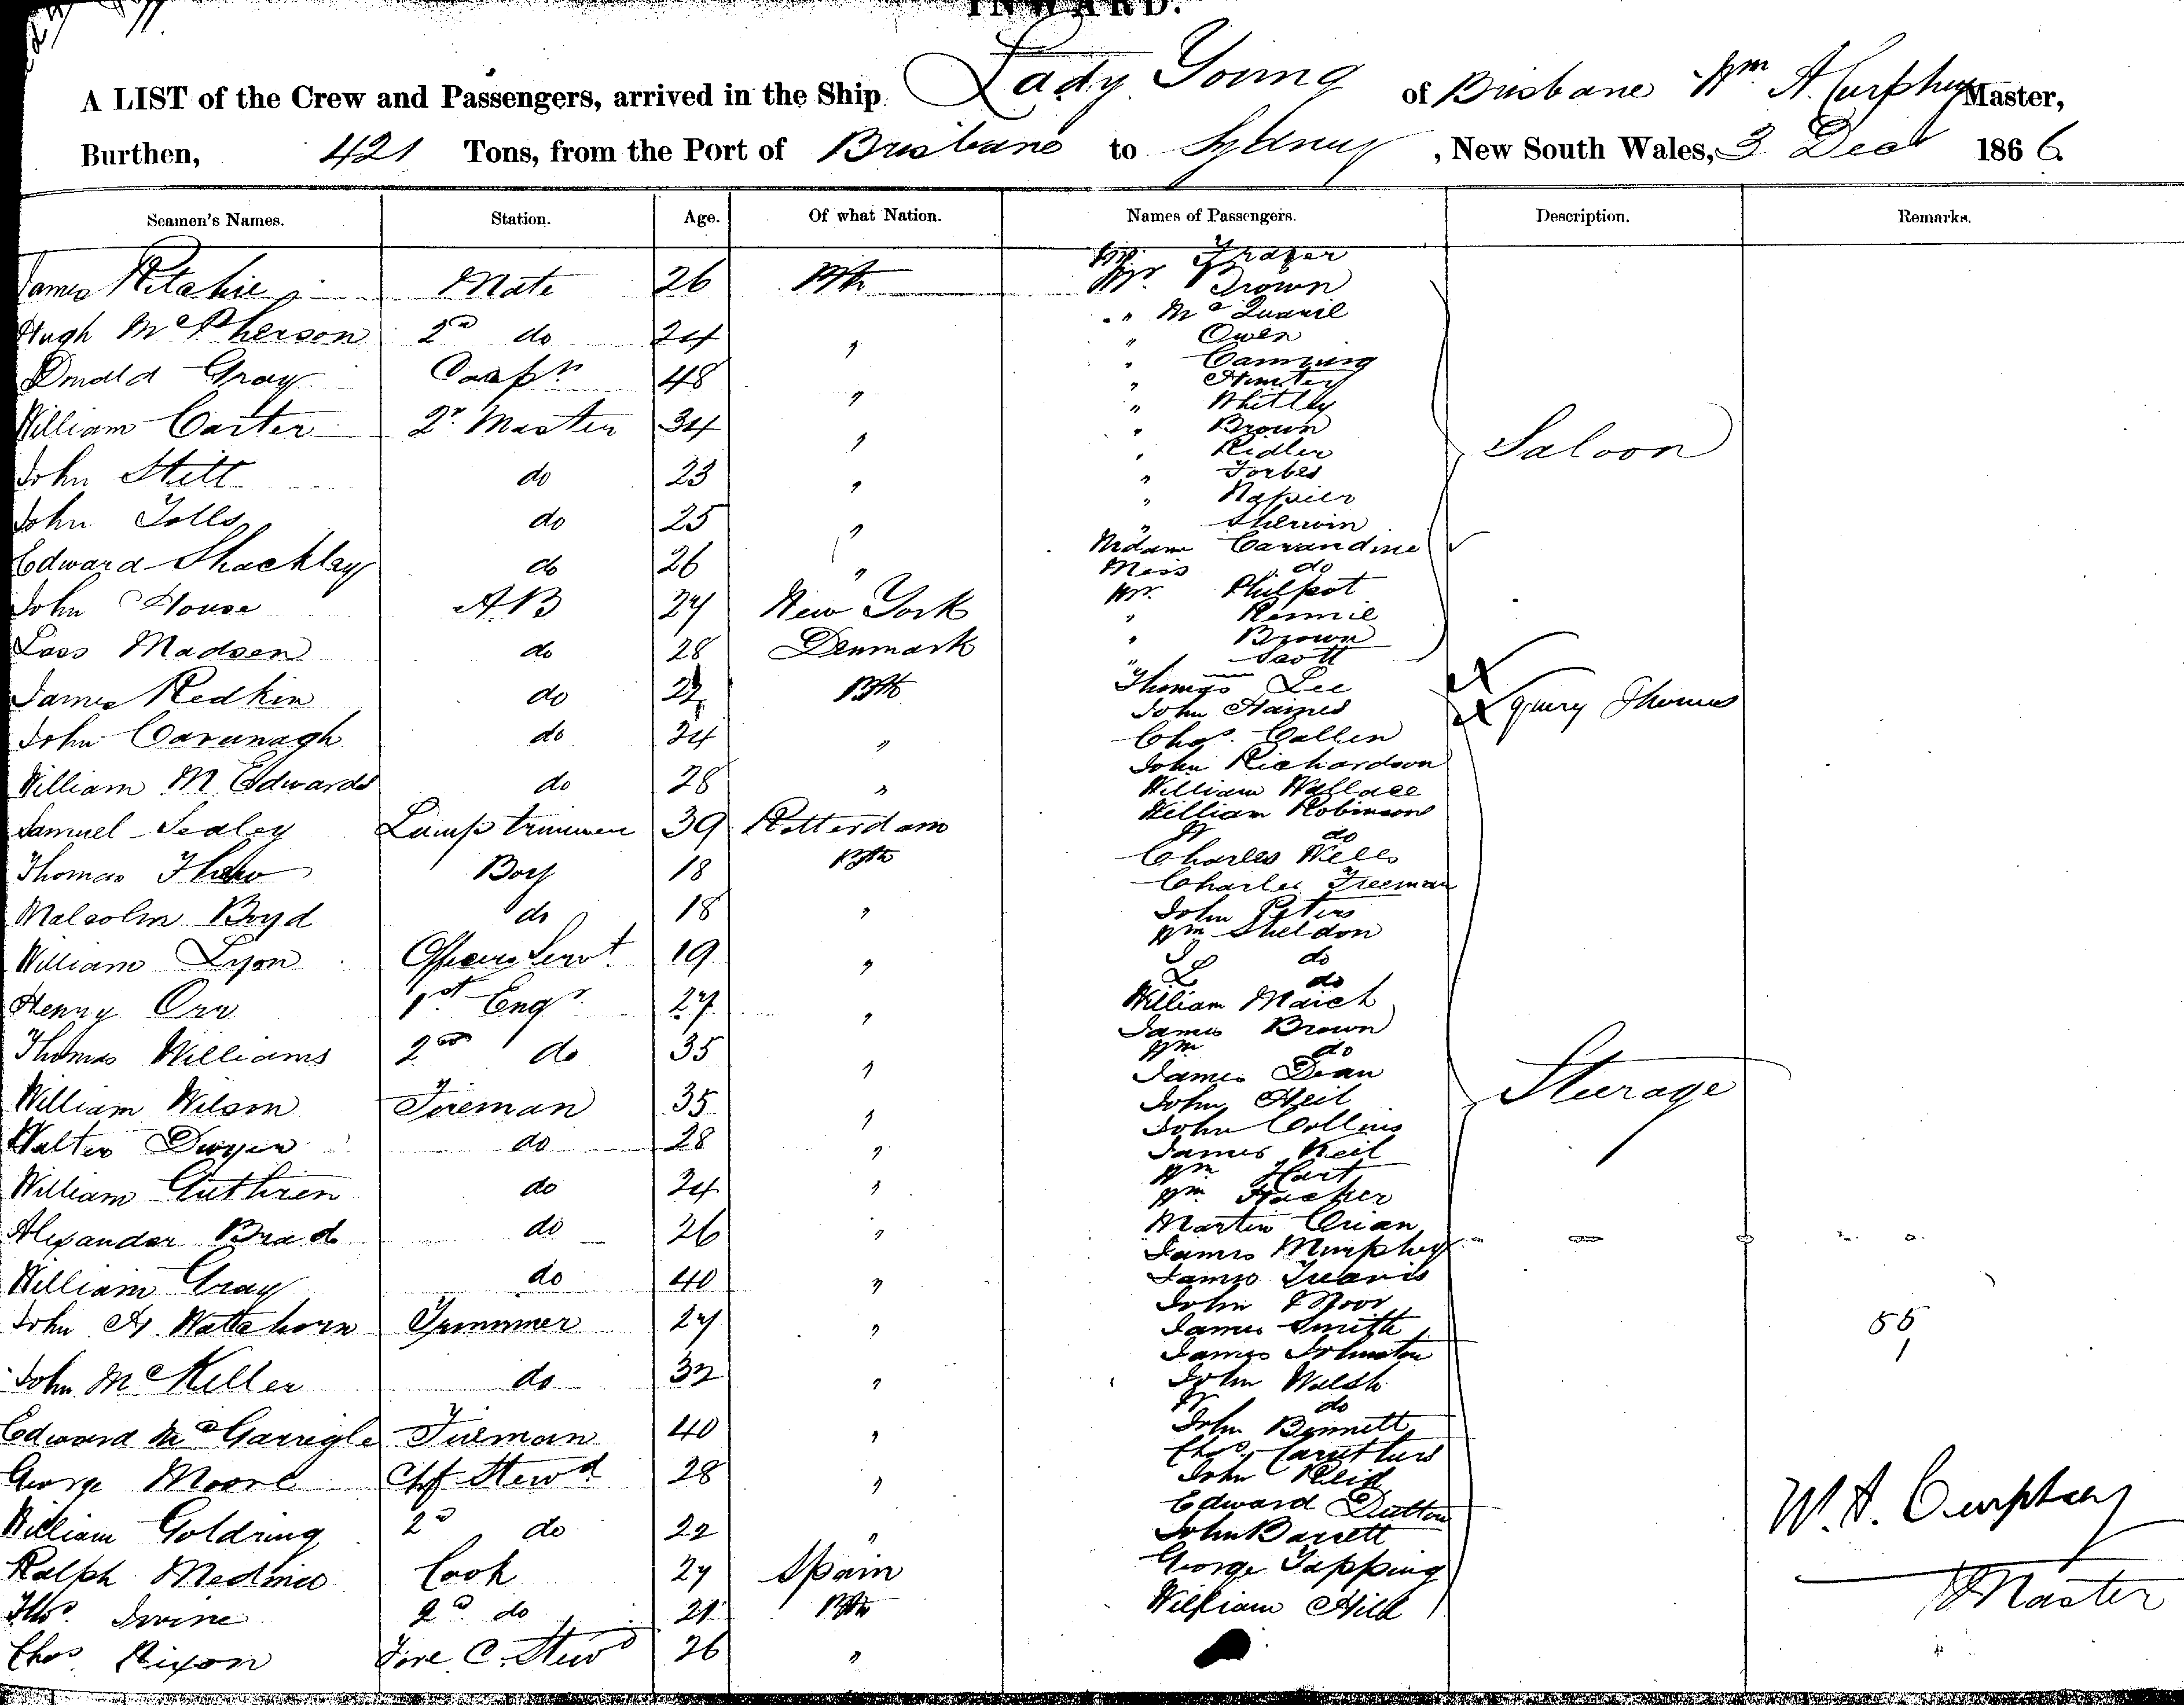 INWARD.
A LIST of the Crew and Passengers, arrived in the Ship Lady Young of Brisbane Wm A. Curphey Master,
Burthen, 421 Tons, from the Port of Brisbane to Sydney, New South Wales, 3 Decr 1866
Seamen's Names. Station. Age. Of what Nation. Names of Passengers. Description. Remarks.
James Ritchie Mate 26 Bth
Hugh McPherson 2nd do 24 "
Donald Gray Carpr 48 "
William Carter Qr Master 34 "
John Stitt do 23 "
John Tolls do 25 "
Edward Shackley do 26 "
John House AB 24 New York
Lass Madsen do 28 Denmark
James Redkin do 22 Bth
John Cavanagh do 34 "
William M Edwards do 28 "
Samuel Sealey Lamp trimmer 39 Rotterdam
Thomas Boy 18 Bth
Malcolm Boyd do 18 "
William Lyon Officers Servt 19 "
Henry Orr 1st Engr 27 "
Thomas Williams 2nd do 35 "
William Wilson Fireman 35 "
Walter Dwyer do 28 "
William Guthrien do 24 "
Alexander Brad do 26 "
William Gray do 40 "
John A Wattehorn Trimmer 27 "
John McKeller do 32 "
Edward McGarrigle Fireman 40 "
George Moore Chf Stewd 28 "
William Goldring 2d do 22 "
Ralph Medina Cook 27 Spain
Thos Irvine 2d do 21 Bth
Chas Nixon Fore C. Stewd 26 "
Mr Frazer
Mr Brown
" McQuarie
" Owen
" Canning
" Hunter
" Whitley
" Brown
" Ridler
" Forbes
" Napier
" Sherwin
Madam Carandine
Miss do
Mr. Philpot
" Rennie
" Brown
" Scott
Saloon
Thomas Lee
John Haines
query Thomas
Chas. Callen
John Richardson
William Wallace
William Robinson
W do
Charles Wells
Charles Freeman
John Peters
Wm Sheldon
S do
L do
William Maich
James Brown
Wm do
James Dean
John Neil
John Collins
James Neil
Wm Hart
Wm Hacker
Martin Crian
James Murphy
James Travis
John Moor
James Smith
James Johnston
John Walsh
W do
John Bennett
Chas Caruthers
John Reid
Edward Dutton
John Barrett
George Tapping
William Hill
Steerage
55
1
W. A. Curphey
Master